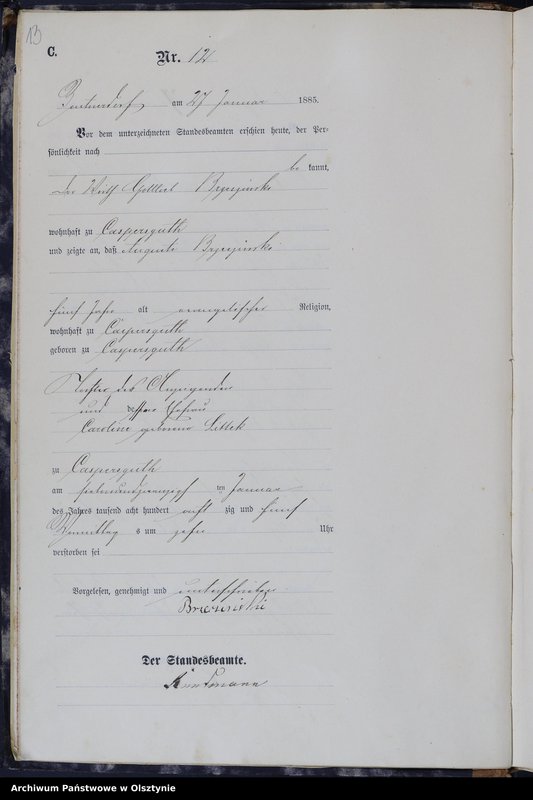 13
C.
Nr. 12
am 27 Januar 1885.
Vor dem unterzeichneten Standesbeamten erschien heute, der Per-
sönlichkeit nach
be kannt,
der Wirth Gottlieb
wohnhaft zu Caspersguth
und zeigte an, daß Auguste
fünf Jahre alt evangelischer Religion,
wohnhaft zu Caspersguth
geboren zu Caspersguth
Tochter des Anzeigenden
und dessen Ehefrau
Caroline geborene Littek
zu Caspersguth
am siebenundzwanzigsten Januar
des Jahres tausend acht hundert acht zig und fünf
Vormittags um zehn Uhr
verstorben sei
Vorgelesen, genehmigt und unterschrieben
Der Standesbeamte.
Archiwum Państwowe w Olsztynie